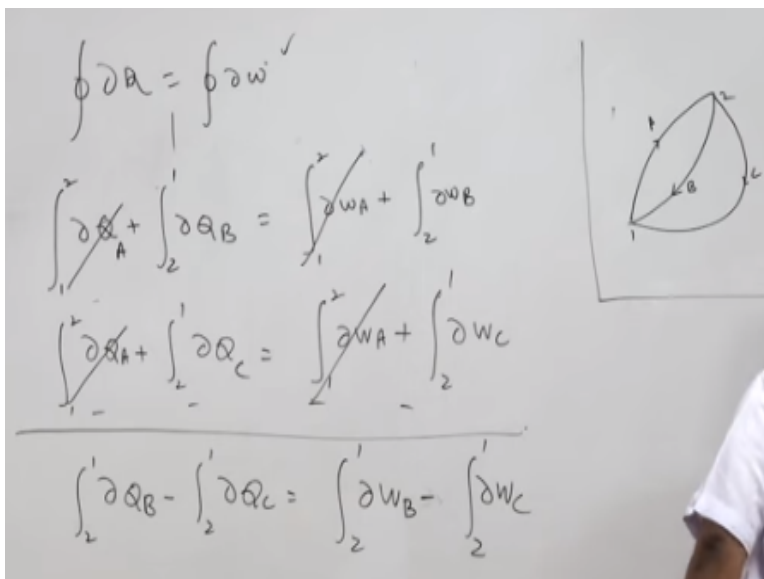 ∮∂Q = ∮∂W ✓
∫₁² ∂Q_A + ∫₂¹ ∂Q_B = ∫₁² ∂W_A + ∫₂¹ ∂W_B
∫₁² ∂Q_A + ∫₂¹ ∂Q_C = ∫₁² ∂W_A + ∫₂¹ ∂W_C
- - -
∫₂¹ ∂Q_B - ∫₂¹ ∂Q_C = ∫₂¹ ∂W_B - ∫₂¹ ∂W_C
2
A
B
C
1